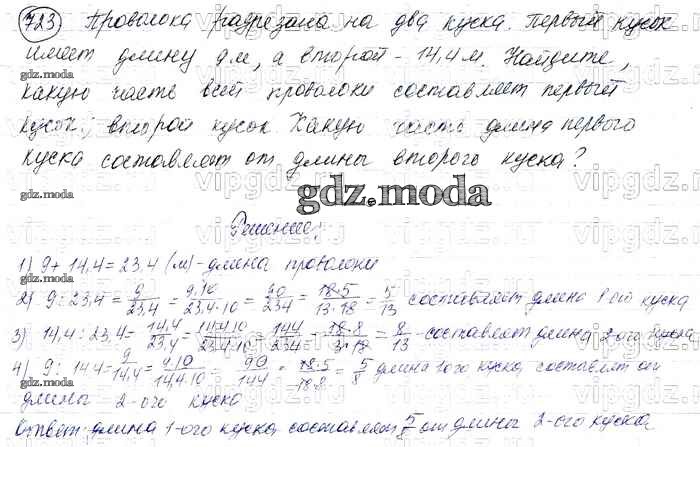 723 Проволока разрезана на два куска. Первый кусок
имеет длину 9 м, а второй - 14,4 м. Найдите,
gdz.moda
какую часть всей проволоки составляет первый
кусок; второй кусок. Какую часть длина первого
куска составляет от длины второго куска?
gdz.moda
Решение:
1) 9 + 14,4 = 23,4 (м) - длина проволоки
2) 9 : 23,4 = 9/23,4 = 9·10/23,4·10 = 90/234 = 18·5/13·18 = 5/13 составляет длина 1-ого куска
3) 14,4 : 23,4 = 14,4/23,4 = 14,4·10/23,4·10 = 144/234 = 18·8/13·18 = 8/13 - составляет длина 2-ого куска
4) 9 : 14,4 = 9/14,4 = 9·10/14,4·10 = 90/144 = 18·5/18·8 = 5/8 длина 1-ого куска составляет от
gdz.moda
длины 2-ого куска
Ответ: длина 1-ого куска составляет 5/8 от длины 2-ого куска
vipgdz.ru